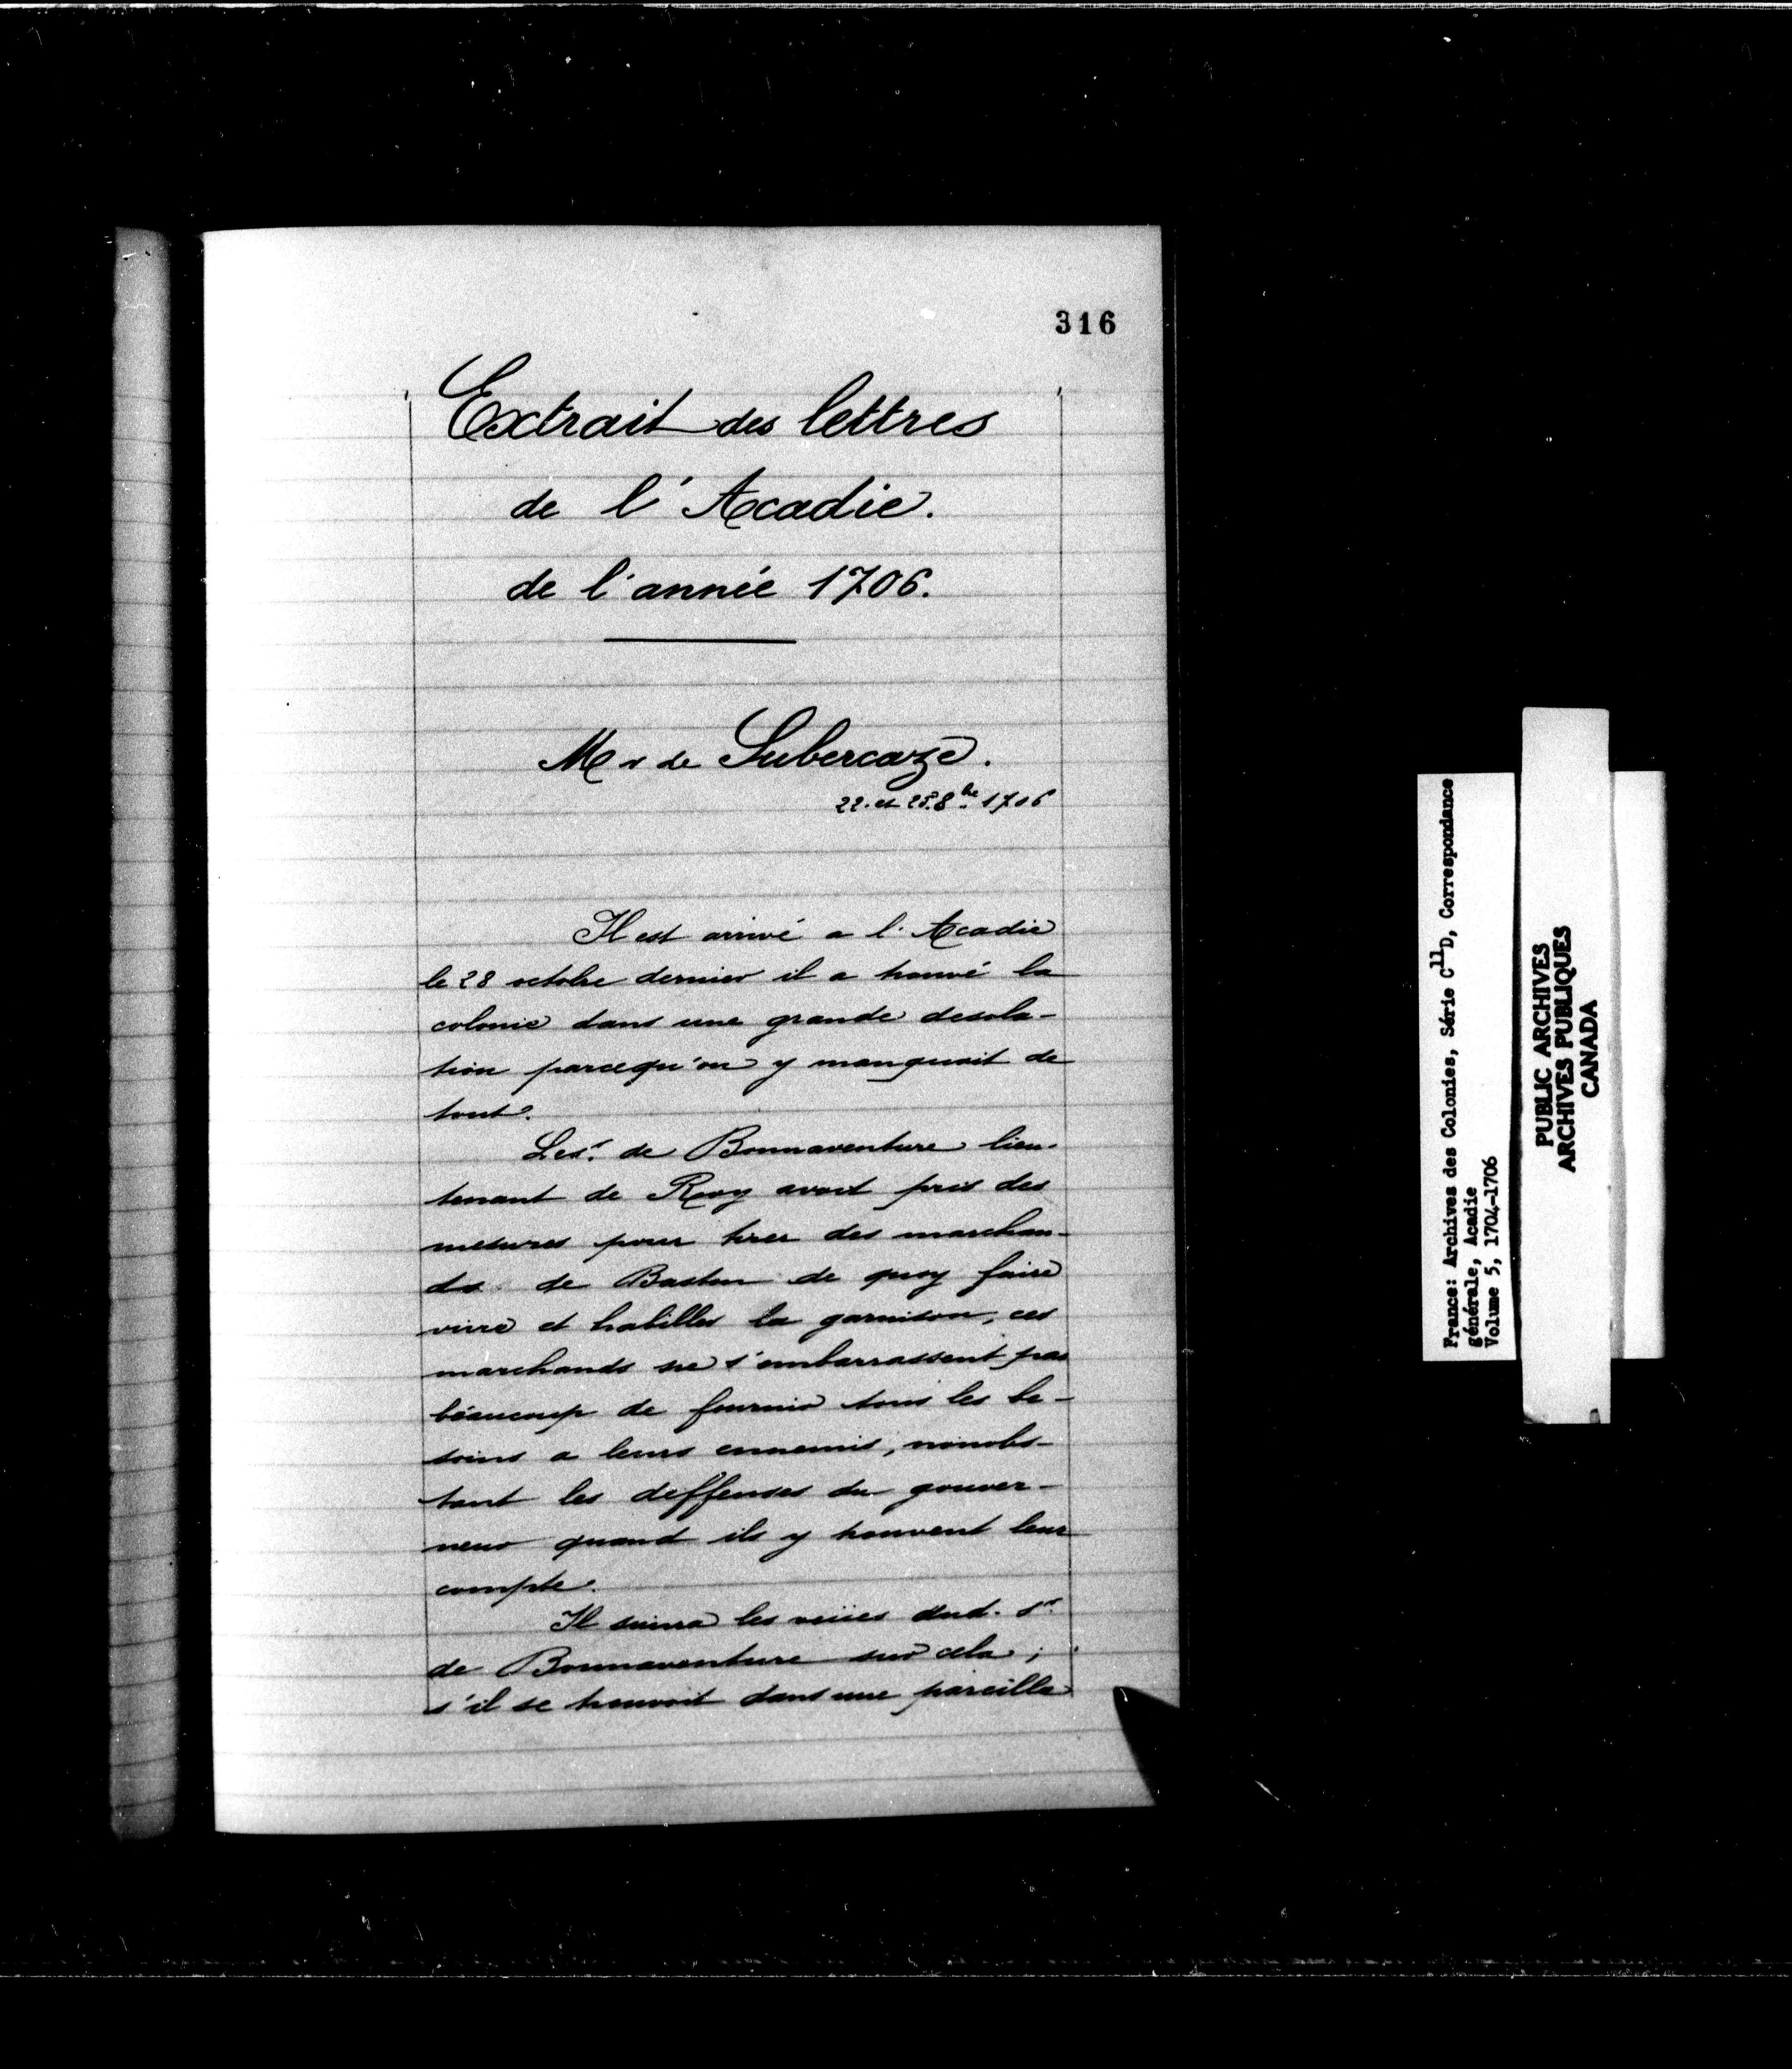 316
Extrait des lettres
de l'Acadie.
de l'année 1706.
Mr de Subercaze.
22. et 25. 8bre 1706
Il est arrivé a l'Acadie
le 28 octobre dernier il a trouvé la
colonie dans une grande desola-
tion parcequ'on y manquoit de
tout.
Le sr. de Bonnaventure lieu-
tenant de Roy avoit pris des
mesures pour tirer des marchan-
ds de Baston de quoy faire
vivre et habiller la garnison, ces
marchands ne s'embarrassent pas
béaucoup de fournir tous les be-
soins a leurs ennemis, nonobs-
tant les deffenses du gouver-
neur quand ils y trouvent leur
compte.
Il suivra les veües dud. sr.
de Bonnaventure sur cela;
s'il se trouvoit dans une pareille
France: Archives des Colonies, Série C11D, Correspondance
générale, Acadie
Volume 5, 1704-1706
PUBLIC ARCHIVES
ARCHIVES PUBLIQUES
CANADA